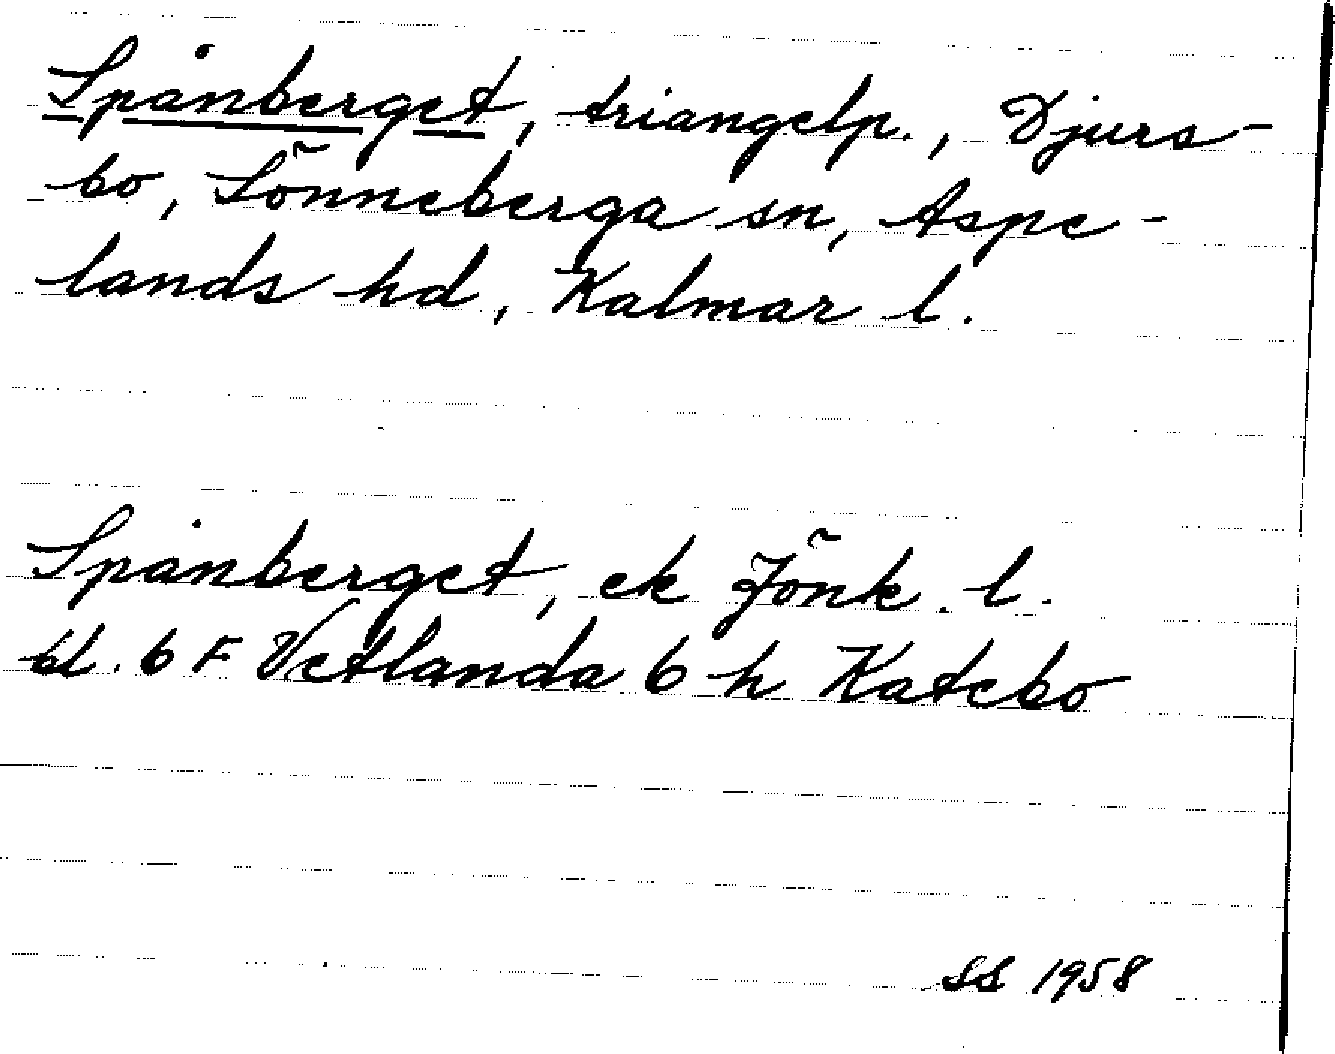 Spånberget, triangelp., Djurs-
bo, Lönneberga sn, Aspe-
lands hd, Kalmar l.
Spånberget, ek Jönk. l.
bl. 6 F Vetlanda 6 h Katebo
SS 1958